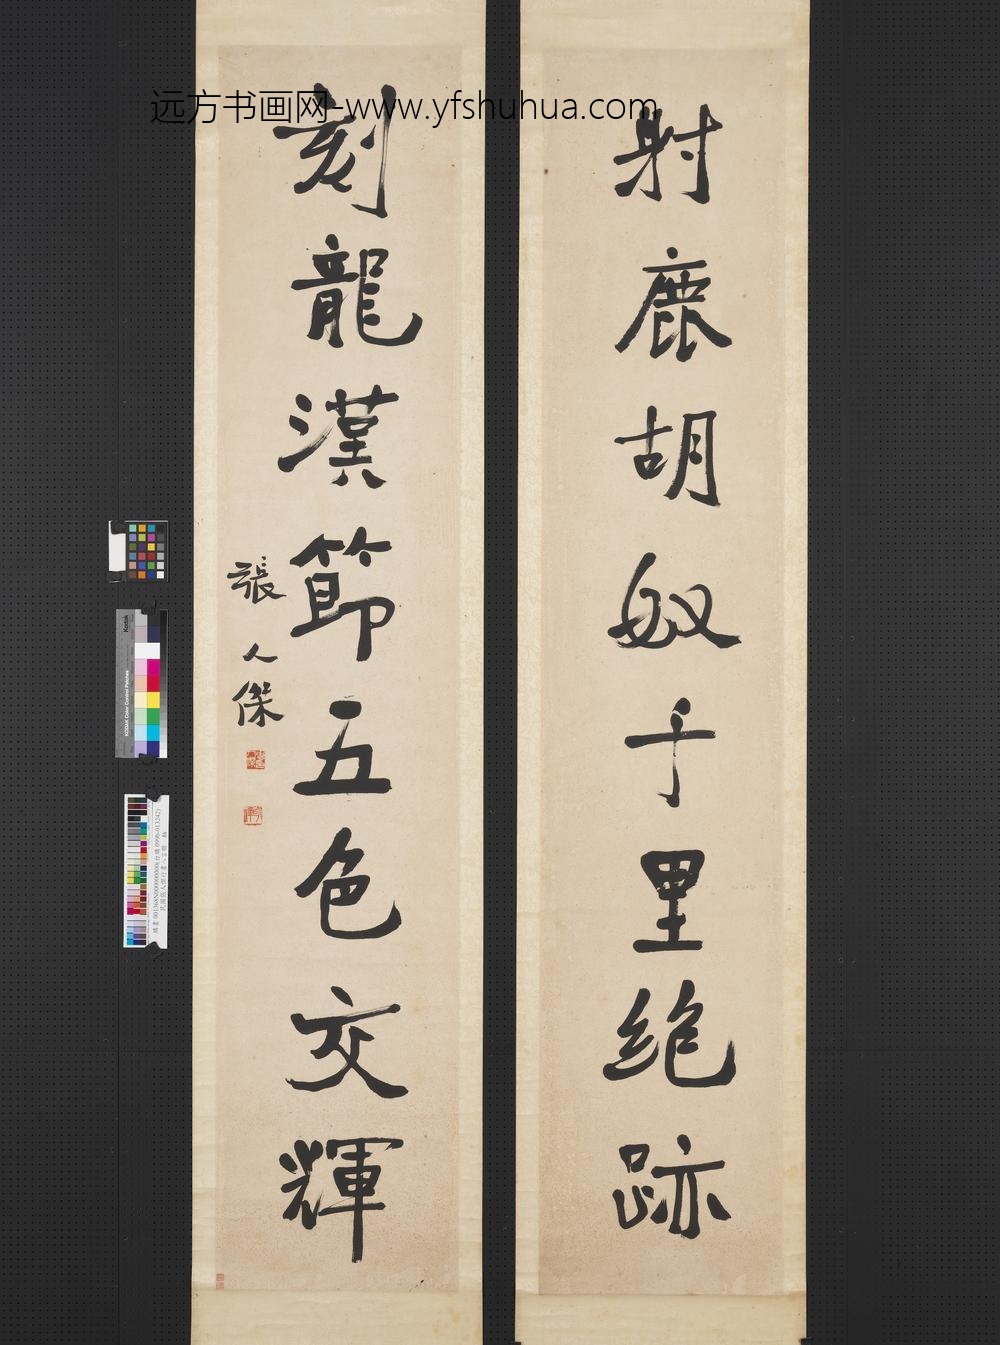 远方书画网-www.yfshuhua.com
射鹿胡奴千里絕跡
刻龍漢節五色交輝
張人傑